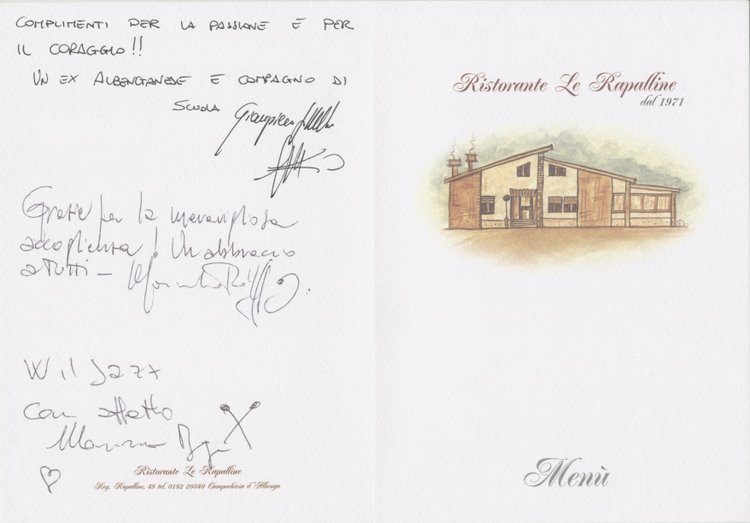 COMPLIMENTI PER LA PASSIONE E PER
IL CORAGGIO!!
UN EX ALBENGANESE E COMPAGNO DI
SCUOLA Giampiero
Grazie per la meravigliosa
accoglienza! Un abbraccio
a tutti –
W il Jazz
Con affetto
Ristorante Le Rapalline
Reg. Rapalline, 49 tel. 0182 20340 Campochiesa d'Albenga
Ristorante Le Rapalline
dal 1971
Menù